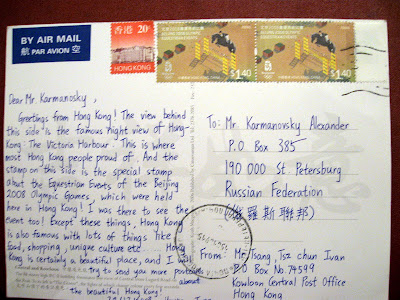 BY AIR MAIL
航 PAR AVION 空
香港 20¢
HONG KONG
$1.40
$1.40
Dear Mr. Karmanosky,
Greetings from Hong Kong! The view behind
this side is the famous night view of Hong
Kong: The Victoria Harbour. This is where
most Hong Kong people proud of. And the
stamp on this side is the special stamp
about the Equestrian Events of the Beijing
2008 Olympic Games, which were held
here in Hong Kong! I was there to see the
event too! Except these things, Hong Kong
is also famous with lots of things like
food, shopping, unique culture etc. Hong
Kong is certainly a beautiful place, and I will
try to send you more postcards
about
the beautiful Hong Kong!
To: Mr. Karmanovsky Alexander
P.O Box 385
190 000 St. Petersburg
Russian Federation
(俄羅斯聯邦)
From: Mr. Tsang, Tsz chun Ivan
P.O Box No. 74599
Kowloon Central Post Office
Hong Kong